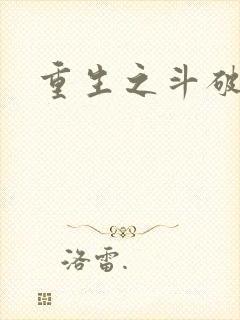 重生之斗破
洛雷.